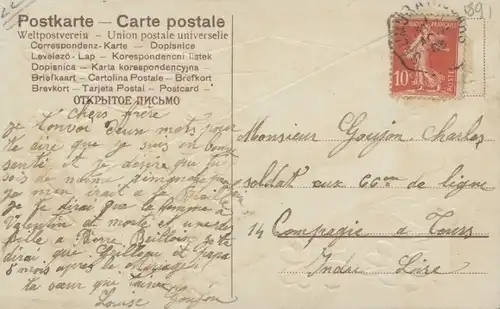 Postkarte — Carte postale
Weltpostverein - Union postale universelle
Correspondenz-Karte - Dopisnice
Levelező-Lap - Korespondenční listek
Dopisnica - Karta korespondencyjna
Briefkaart - Cartolina Postale - Brefkort
Brevkort - Tarjeta Postal - Postcard
ОТКРЫТОЕ ПИСЬМО
Chers frère
je tonvoi deux mots pour
te dire que je suis en bonne
santé et je désire que tu
sois de même dimanche
je men irait a la
je te dirai que la femme a
Valentin et morte et une
fille a Pierre je te
dirai que papa
5 mois après le Mariage
ta sœur que taime
Louise Goujon
Monsieur Goujon Charles
soldat aux 66em de ligne
14 Compagie a Tours
Indre Loire
10
POSTES
189